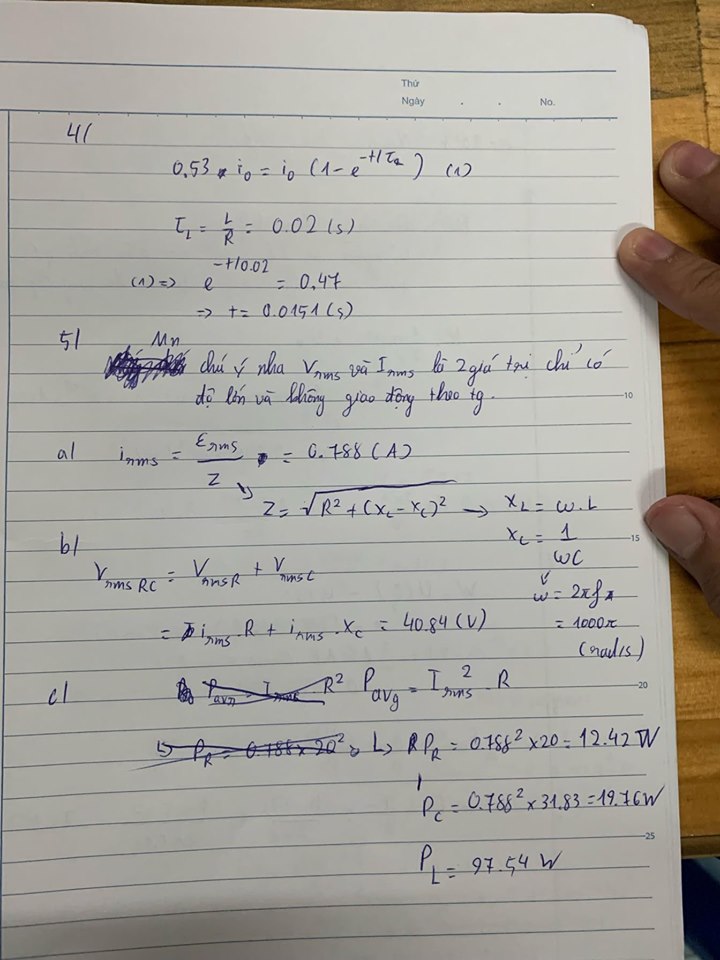 Thứ
Ngày . . No.
4/
0.53 i₀ = i₀ (1 - e^(-t/τ_L)) (1)
τ_L = L/R = 0.02 (s)
(1) => e^(-t/0.02) = 0.47
=> t = 0.0151 (s)
5/ Mn
chú ý nha V_rms và I_rms là 2 giá trị chỉ có
độ lớn và không giao động theo tg.
10
a/ i_rms = ε_rms/Z = 0.788 (A)
Z = √(R² + (X_L - X_C)²) → X_L = ω.L
X_C = 1/ωC
15
b/ V_rms RC = V_rms R + V_rms C
ω = 2πf
= i_rms.R + i_rms.X_C = 40.84 (V)
= 1000π
(rad/s)
c/ P_avg = I_rms².R
20
P_R = 0.788² x 20 = 12.42 W
P_C = 0.788² x 31.83 = 19.76 W
25
P_L = 97.54 W